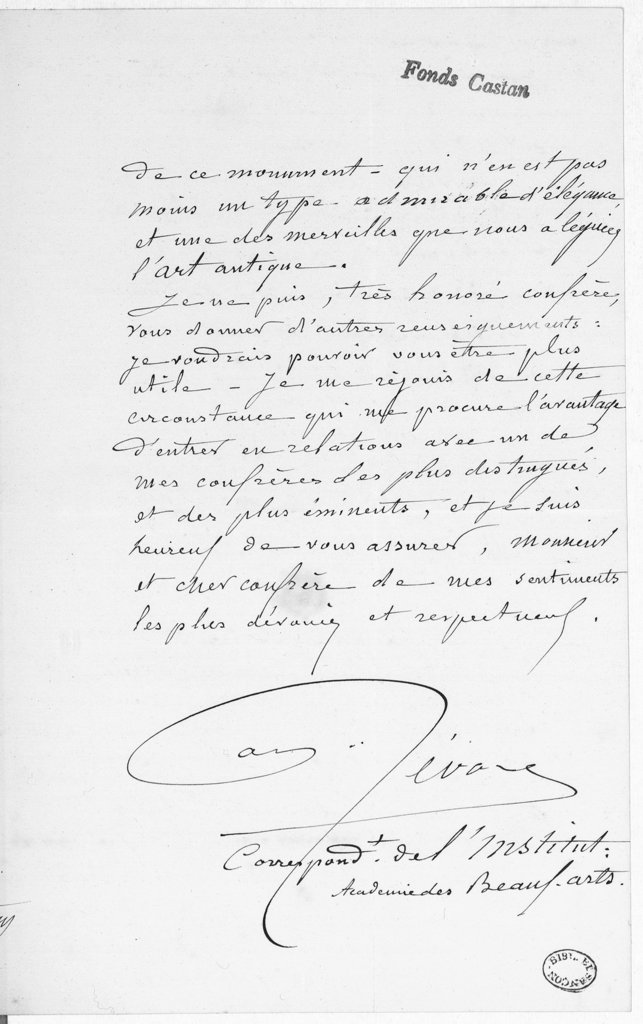 Fonds Castan
de ce monument - qui n'en est pas
moins un type admirable d'élégance,
et une des merveilles que nous a léguées
l'art antique.
Je ne puis, très honoré confrère,
vous donner d'autres renseignements:
je voudrais pouvoir vous être plus
utile - Je me réjouis de cette
circonstance qui me procure l'avantage
d'entrer en relations avec un de
mes confrères des plus distingués,
et des plus éminents, et je suis
heureux de vous assurer, Monsieur
et cher confrère de mes sentiments
les plus dévoués et respectueux.
Révoil
Correspondt. de l'Institut:
Academie des Beaux-arts.
BIBL. BESANÇON